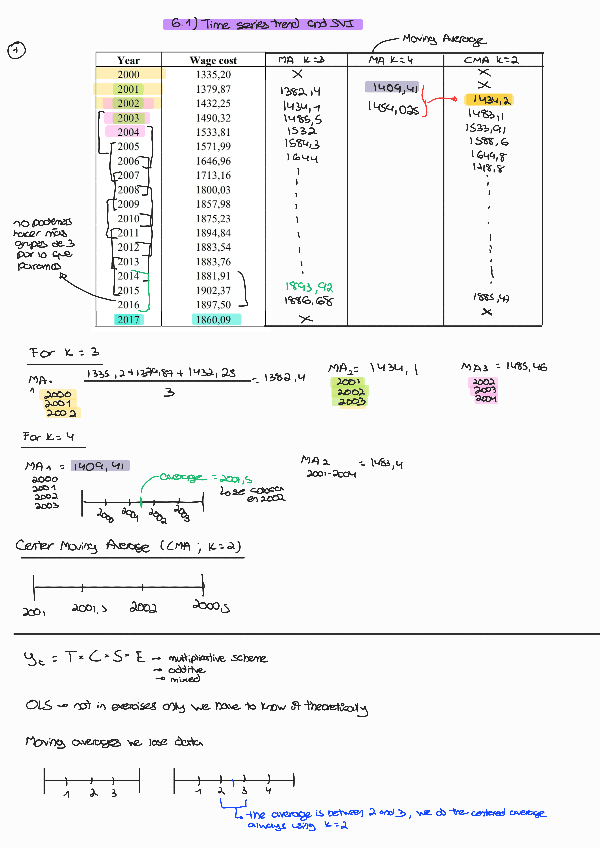 6.1) Time series trend and SVI
1
Moving Average
Year Wage cost MA K=3 MA K=4 CMA K=2
2000 1335,20 X X
2001 1379,87 1382,4 1409,41 X
2002 1432,25 1434,1 1454,025 1434,2
2003 1490,32 1485,5 1483,1
2004 1533,81 1532 1533,91
2005 1571,99 1584,3 1588,6
2006 1646,96 1644 1649,8
2007 1713,16 1718,8
2008 1800,03
2009 1857,98
2010 1875,23
2011 1894,84
2012 1883,54
2013 1883,76
2014 1881,91
2015 1902,37 1893,92
2016 1897,50 1886,65 1885,47
2017 1860,09 X X
no podemos
hacer más
grupos de 3
por lo que
paramos
For K = 3
MA1 1335,2+1379,87 + 1432,25 / 3 = 1382,4
2000
2001
2002
MA2 = 1434,1
2001
2002
2003
MA3 = 1485,46
2002
2003
2004
For K = 4
MA1 = 1409,41
2000
2001
2002
2003
average = 2001,5
2000 2001 2002 2003
en 2002
MA2 = 1483,4
2001-2004
Center Moving Average (CMA; K=2)
2001 2001,5 2002 2000,5
yt = T · C · S · E → multiplicative scheme
→ additive
→ mixed
OLS → not in exercises only we have to know it theoretically
Moving averages we lose data
1 2 3
1 2 3 4
the average is between 2 and 3, we do the centered average
always using K=2